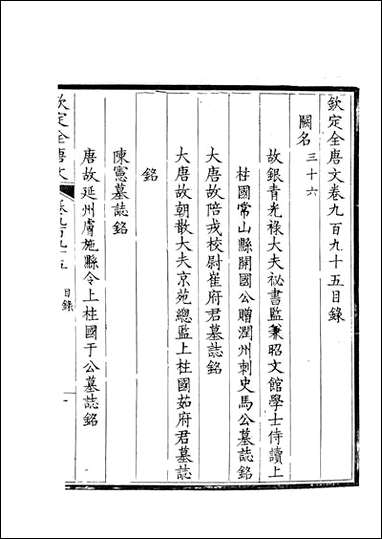 欽定全唐文卷九百九十五目錄
闕名三十六
故銀青光祿大夫祕書監兼昭文館學士侍讀上
柱國常山縣開國公贈潤州刺史馬公墓誌銘
大唐故陪戎校尉崔府君墓誌銘
大唐故朝散大夫京苑總監上柱國茹府君墓誌
銘
陳憲墓誌銘
唐故延州膚施縣令上柱國于公墓誌銘
欽定全唐文
卷九百九十五
目錄
一